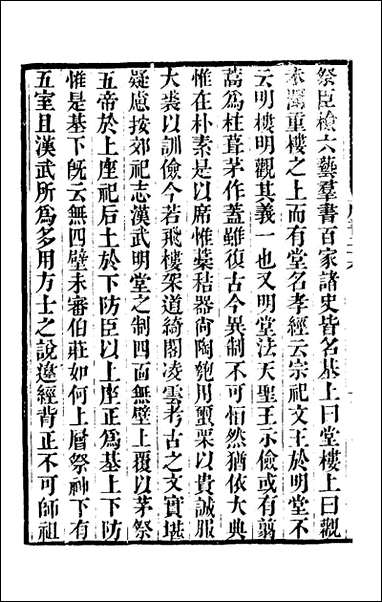 祭臣檢六藝羣書百家諸史皆名基上曰堂樓上曰觀
未聞重樓之上而有堂名孝經云宗祀文王於明堂不
云明樓明觀其義一也又明堂法天聖王示儉或有翦
蒿爲柱葺茅作蓋雖復古今異制不可恒然猶依大典
惟在朴素是以席惟藳秸器尙陶匏用蠒栗以貴誠服
大裘以訓儉今若飛樓架道綺閣凌雲考古之文實堪
疑慮按郊祀志漢武明堂之制四面無壁上覆以茅祭
五帝於上座祀后土於下防臣以上座正爲基上下防
惟是基下旣云無四壁未審伯莊如何上層祭神下有
五室且漢武所爲多用方士之說違經背正不可師祖